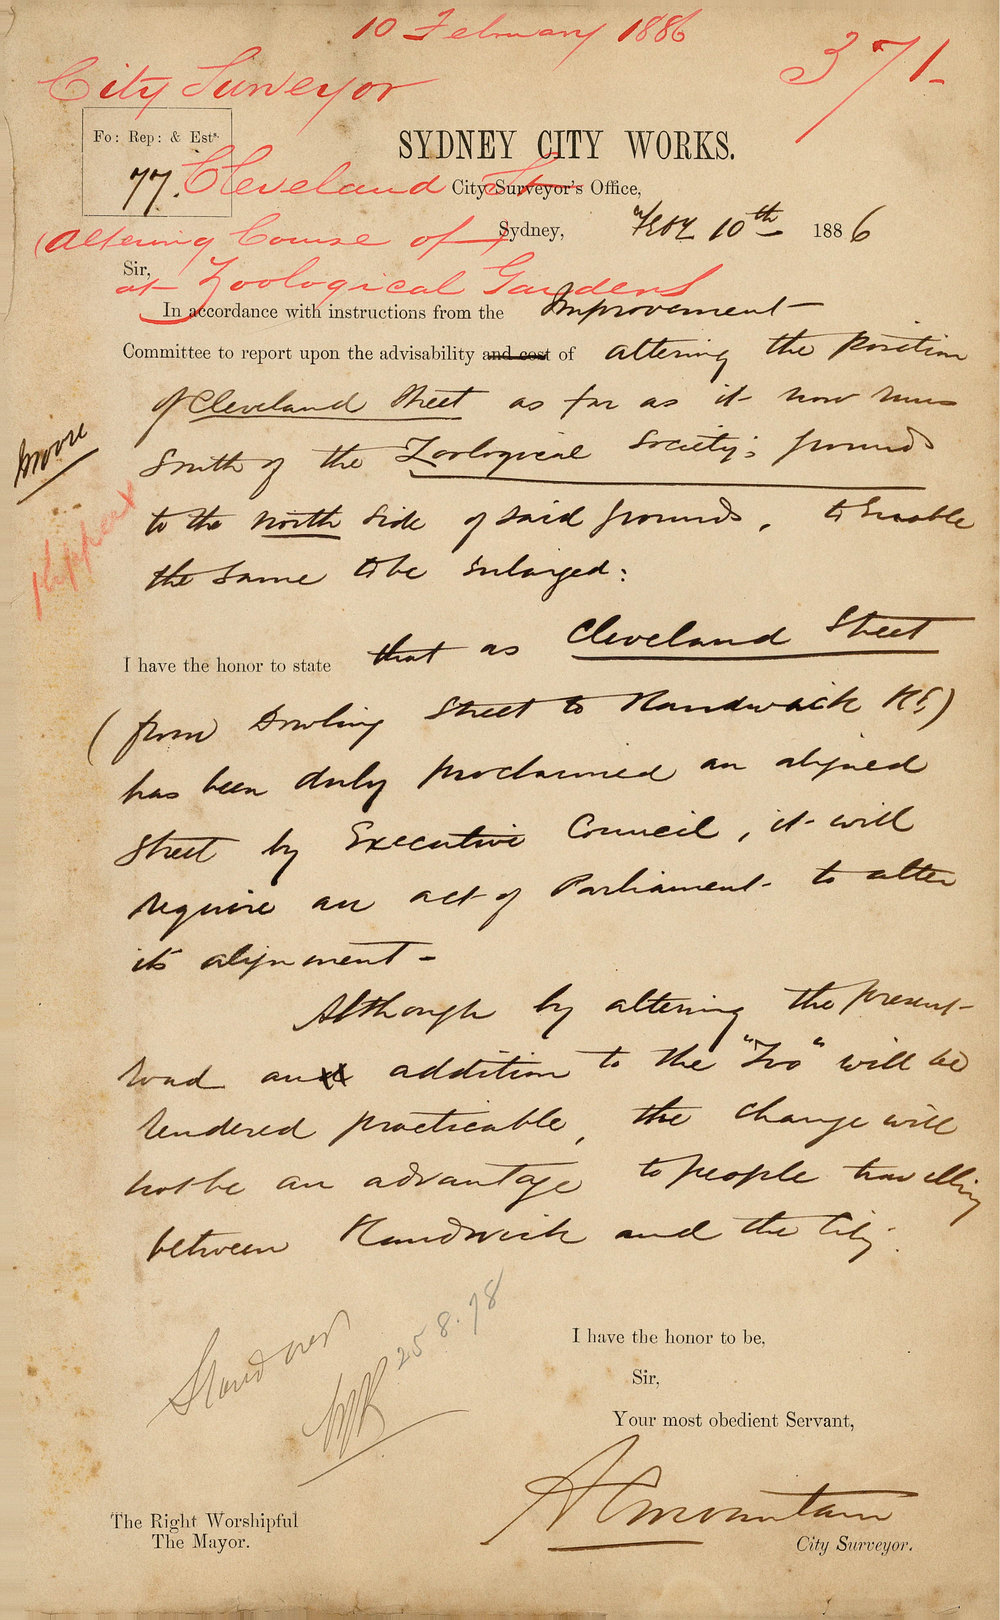 10 February 1886
371-
City Surveyor
Fo: Rep: & Ests.
SYDNEY CITY WORKS.
77. Cleveland St
City Surveyor's Office,
(altering Course of
Sydney, Feby 10th 1886
Sir,
at Zoological Gardens
In accordance with instructions from the Improvement
Committee to report upon the advisability and cost of altering the position
of Cleveland Street as far as it now runs
South of the Zoological Society's grounds
Moore
to the north side of said grounds, to enable
the same to be enlarged:
I have the honor to state that as Cleveland Street
(from Dowling Street to Randwick Rd)
has been duly proclaimed an aligned
Street by Executive Council, it will
require an act of Parliament to alter
its alignment -
Although by altering the present
road an addition to the "Zoo" will be
rendered practicable, the change will
not be an advantage to people travelling
between Randwick and the City.
Stand over
25.8.
I have the honor to be,
Sir,
Your most obedient Servant,
A C Mountain
The Right Worshipful
The Mayor.
City Surveyor.